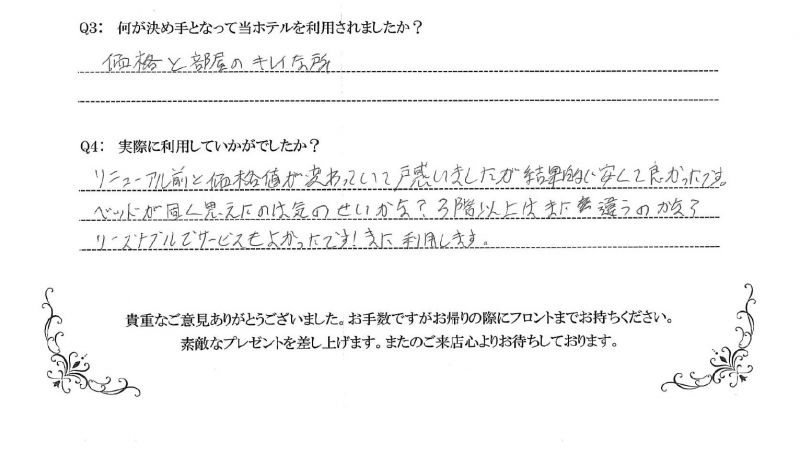 Q3： 何が決め手となって当ホテルを利用されましたか？
価格と部屋のキレイな所
Q4： 実際に利用していかがでしたか？
リニューアル前と価格値が変わっていて戸惑いましたが結果的に安くて良かったです。
ベッドが固く思えたのは気のせいかな？3階以上はまた違うのかな？
リーズナブルでサービスもよかったです！また利用します。
貴重なご意見ありがとうございました。お手数ですがお帰りの際にフロントまでお持ちください。
素敵なプレゼントを差し上げます。またのご来店心よりお待ちしております。